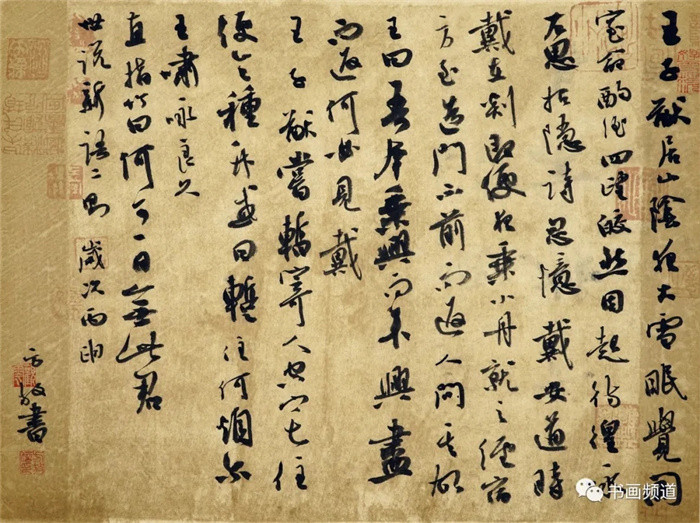 王子猷居山陰夜大雪眠覺開
室命酌酒四望皎然因起彷徨詠
左思招隱詩忽憶戴安道時
戴在剡即便夜乘小舟就之經宿
方至造門不前而返人問其故
王曰吾本乘興而來興盡
而返何必見戴
王子猷嘗暫寄人空宅住
便令種竹或曰暫住何煩爾
王嘯詠良久
直指竹曰何可一日無此君
世說新語二則 歲次丙申
書
书画频道